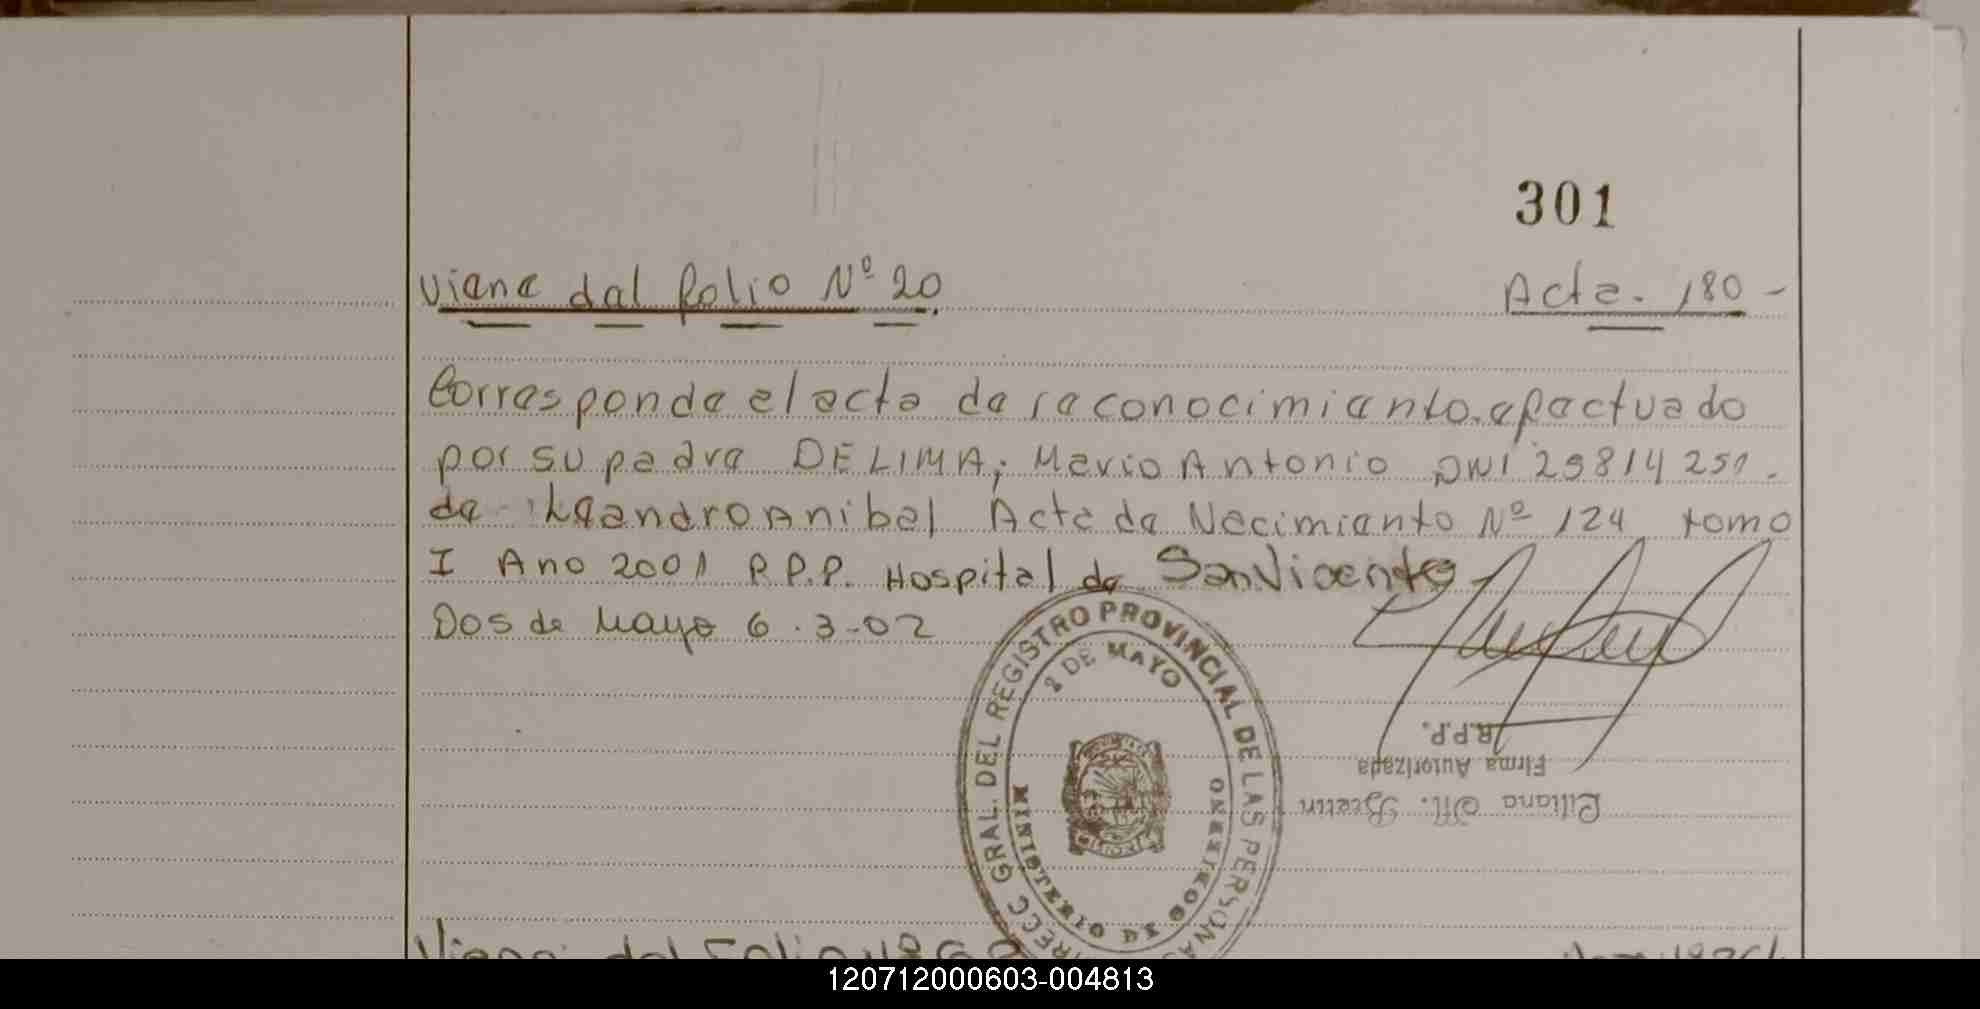 301
Viene del folio Nº 20
Acta. 180 -
Corresponde el acta de reconocimiento. efectuado
por su padre DELIMA; Mario Antonio DNI
de Leandro Anibal Acta de Nacimiento Nº 124 tomo
I Ano 2001 R.P.P. Hospital de San Vicente
Dos de Mayo 6.3-02
GRAL. DEL REGISTRO PROVINCIAL DE LAS PERSONAS
2 DE MAYO
MINISTERIO DE GOBIERNO
R.P.P.
Firma Autorizada
Liliana M.
Viene del Folio
120712000603-004813